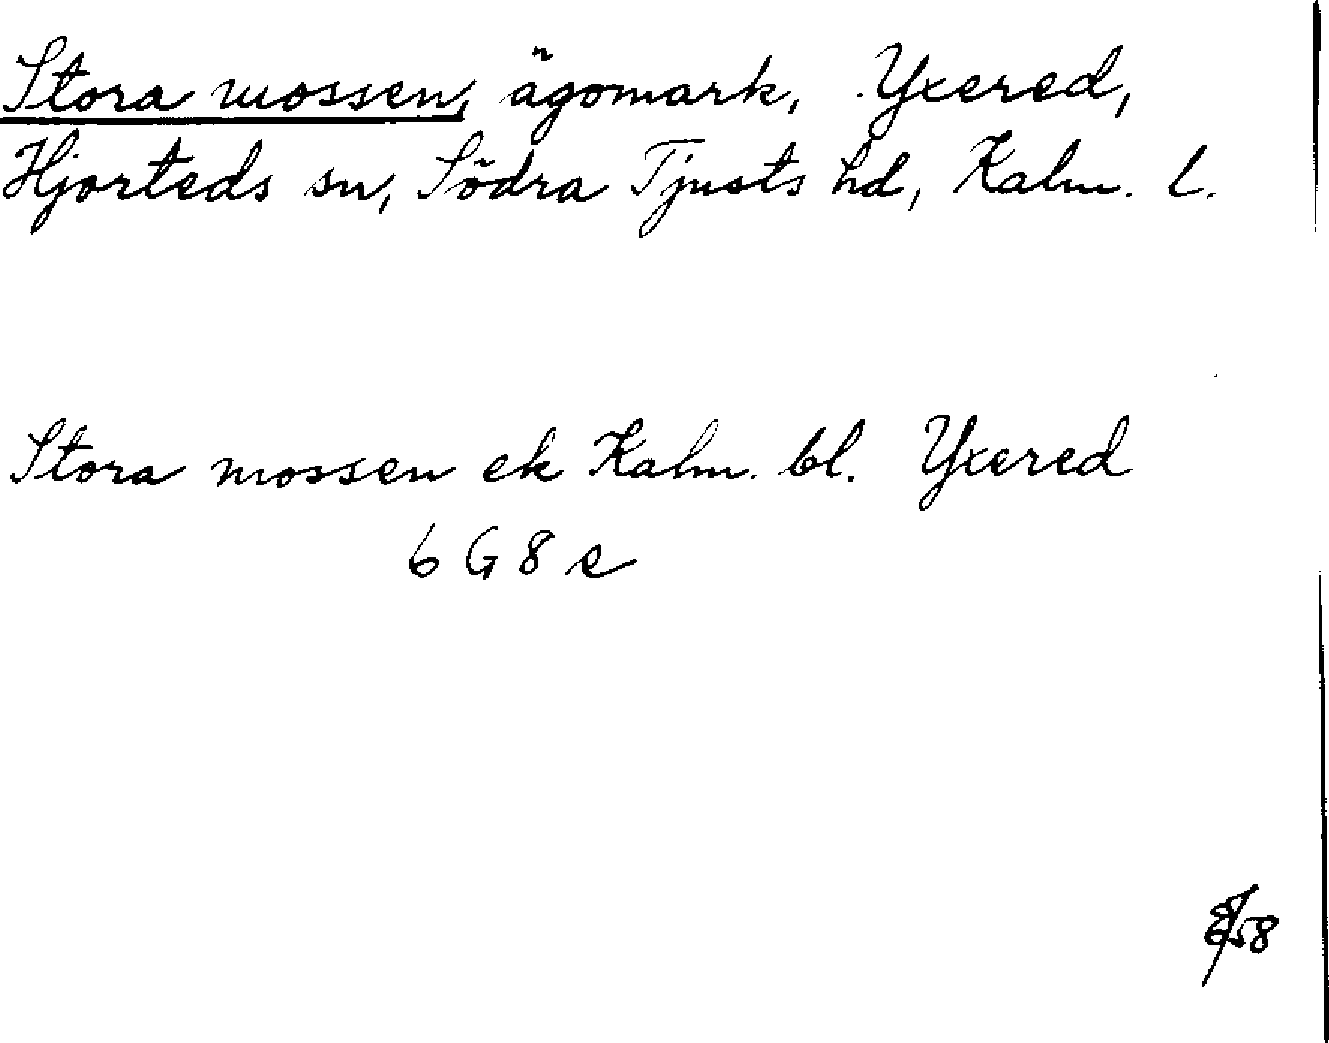 Stora mossen, ägomark, Yxered,
Hjorteds sn, Södra Tjusts hd, Kalm. l.
Stora mossen ek Kalm. bl. Yxered
6 G 8 e